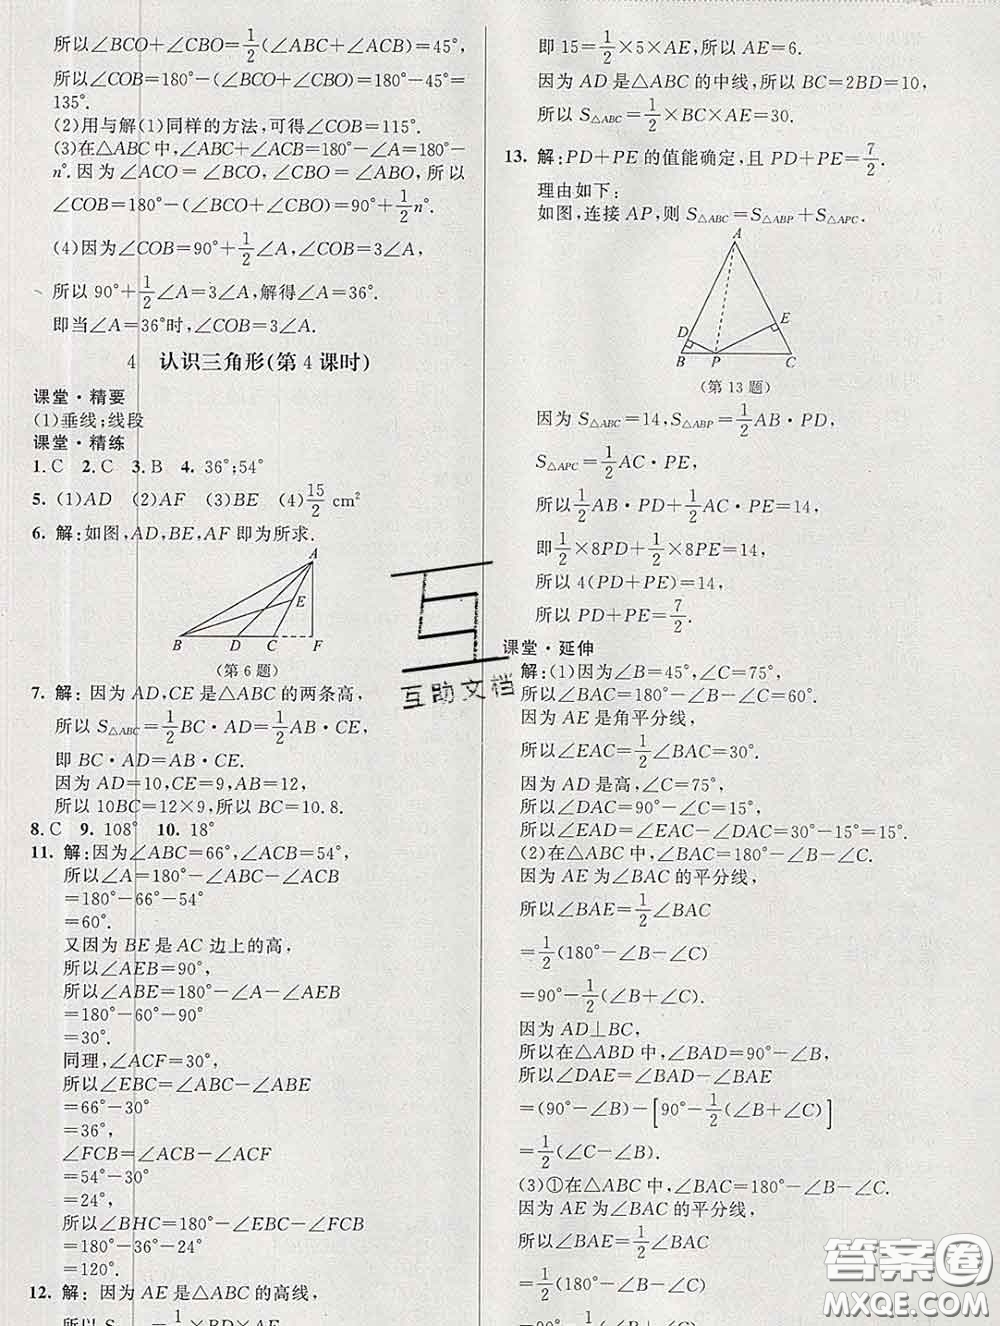 所以∠BCO+∠CBO=1/2(∠ABC+∠ACB)=45°,
所以∠COB=180°-(∠BCO+∠CBO)=180°-45°=
135°.
(2)用与解(1)同样的方法,可得∠COB=115°.
(3)在△ABC中,∠ABC+∠ACB=180°-∠A=180°-
n°.因为∠ACO=∠BCO,∠CBO=∠ABO,所以
∠COB=180°-(∠BCO+∠CBO)=90°+1/2n°.
(4)因为∠COB=90°+1/2∠A,∠COB=3∠A,
所以90°+1/2∠A=3∠A,解得∠A=36°.
即当∠A=36°时,∠COB=3∠A.
4 认识三角形(第4课时)
课堂·精要
(1)垂线;线段
课堂·精练
1.C 2.C 3.B 4. 36°;54°
5. (1)AD (2)AF (3)BE (4)15/2 cm²
6. 解:如图,AD,BE,AF即为所求.
A
E
B D C F
(第6题)
7. 解:因为AD,CE是△ABC的两条高,
所以S△ABC=1/2BC·AD=1/2AB·CE,
即BC·AD=AB·CE.
因为AD=10,CE=9,AB=12,
所以10BC=12×9,所以BC=10.8.
8.C 9. 108° 10. 18°
11. 解:因为∠ABC=66°,∠ACB=54°,
所以∠A=180°-∠ABC-∠ACB
=180°-66°-54°
=60°.
又因为BE是AC边上的高,
所以∠AEB=90°,
所以∠ABE=180°-∠A-∠AEB
=180°-60°-90°
=30°.
同理,∠ACF=30°,
所以∠EBC=∠ABC-∠ABE
=66°-30°
=36°,
∠FCB=∠ACB-∠ACF
=54°-30°
=24°,
所以∠BHC=180°-∠EBC-∠FCB
=180°-36°-24°
=120°.
12. 解:因为AE是△ABC的高线,
即15=1/2×5×AE,所以AE=6.
因为AD是△ABC的中线,所以BC=2BD=10,
所以S△ABC=1/2×BC×AE=30.
13. 解:PD+PE的值能确定,且PD+PE=7/2.
理由如下:
如图,连接AP,则S△ABC=S△ABP+S△APC.
A
D E
B P C
(第13题)
因为S△ABC=14,S△ABP=1/2AB·PD,
S△APC=1/2AC·PE,
所以1/2AB·PD+1/2AC·PE=14,
即1/2×8PD+1/2×8PE=14,
所以4(PD+PE)=14,
所以PD+PE=7/2.
课堂·延伸
解:(1)因为∠B=45°,∠C=75°,
所以∠BAC=180°-∠B-∠C=60°.
因为AE是角平分线,
所以∠EAC=1/2∠BAC=30°.
因为AD是高,∠C=75°,
所以∠DAC=90°-∠C=15°,
所以∠EAD=∠EAC-∠DAC=30°-15°=15°.
(2)在△ABC中,∠BAC=180°-∠B-∠C.
因为AE为∠BAC的平分线,
所以∠BAE=1/2∠BAC
=1/2(180°-∠B-∠C)
=90°-1/2(∠B+∠C).
因为AD⊥BC,
所以在△ABD中,∠BAD=90°-∠B,
所以∠DAE=∠BAD-∠BAE
=(90°-∠B)-[90°-1/2(∠B+∠C)]
=1/2(∠C-∠B).
(3)①在△ABC中,∠BAC=180°-∠B-∠C.
因为AE为∠BAC的平分线,
所以∠BAE=1/2∠BAC
=1/2(180°-∠B-∠C)
互助文档
答案圈
MXQE.COM